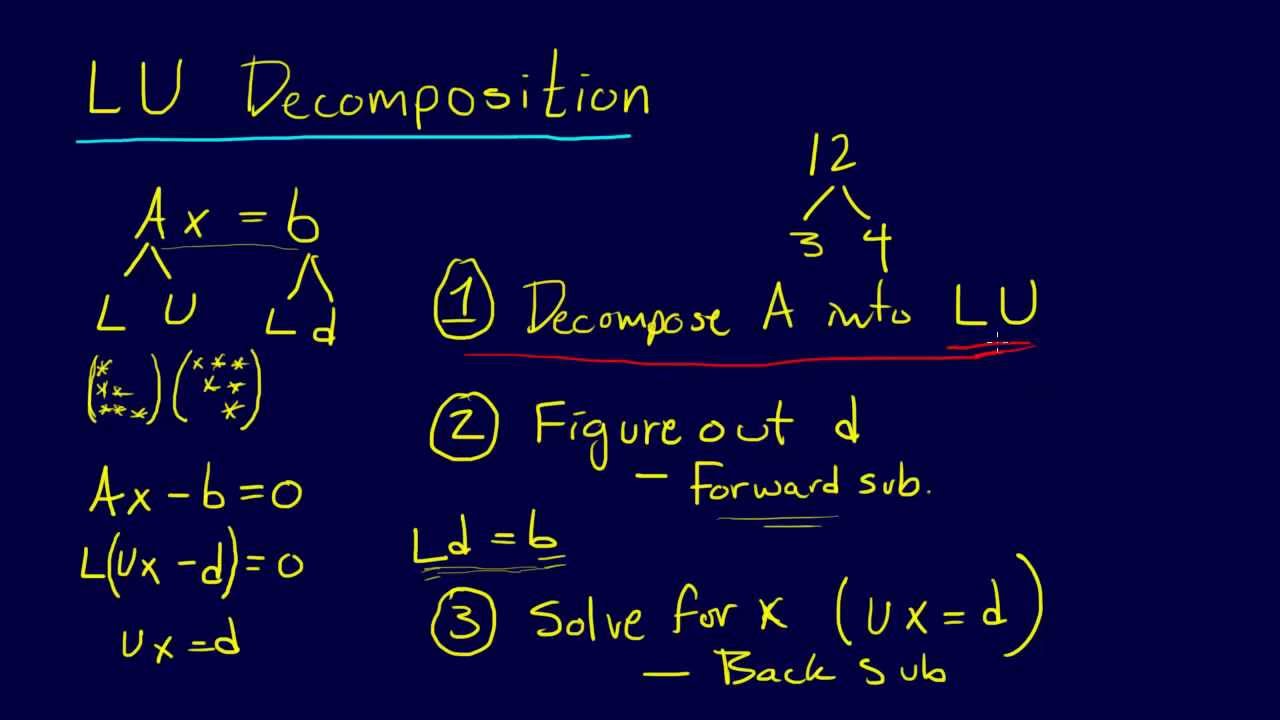 LU Decomposition
Ax = b
L U
L d
(*
**
***)
(***
**
*)
Ax - b = 0
L(Ux - d) = 0
Ux = d
12
3 4
① Decompose A into LU
② Figure out d
— Forward sub.
Ld = b
③ Solve for x (Ux = d)
— Back sub